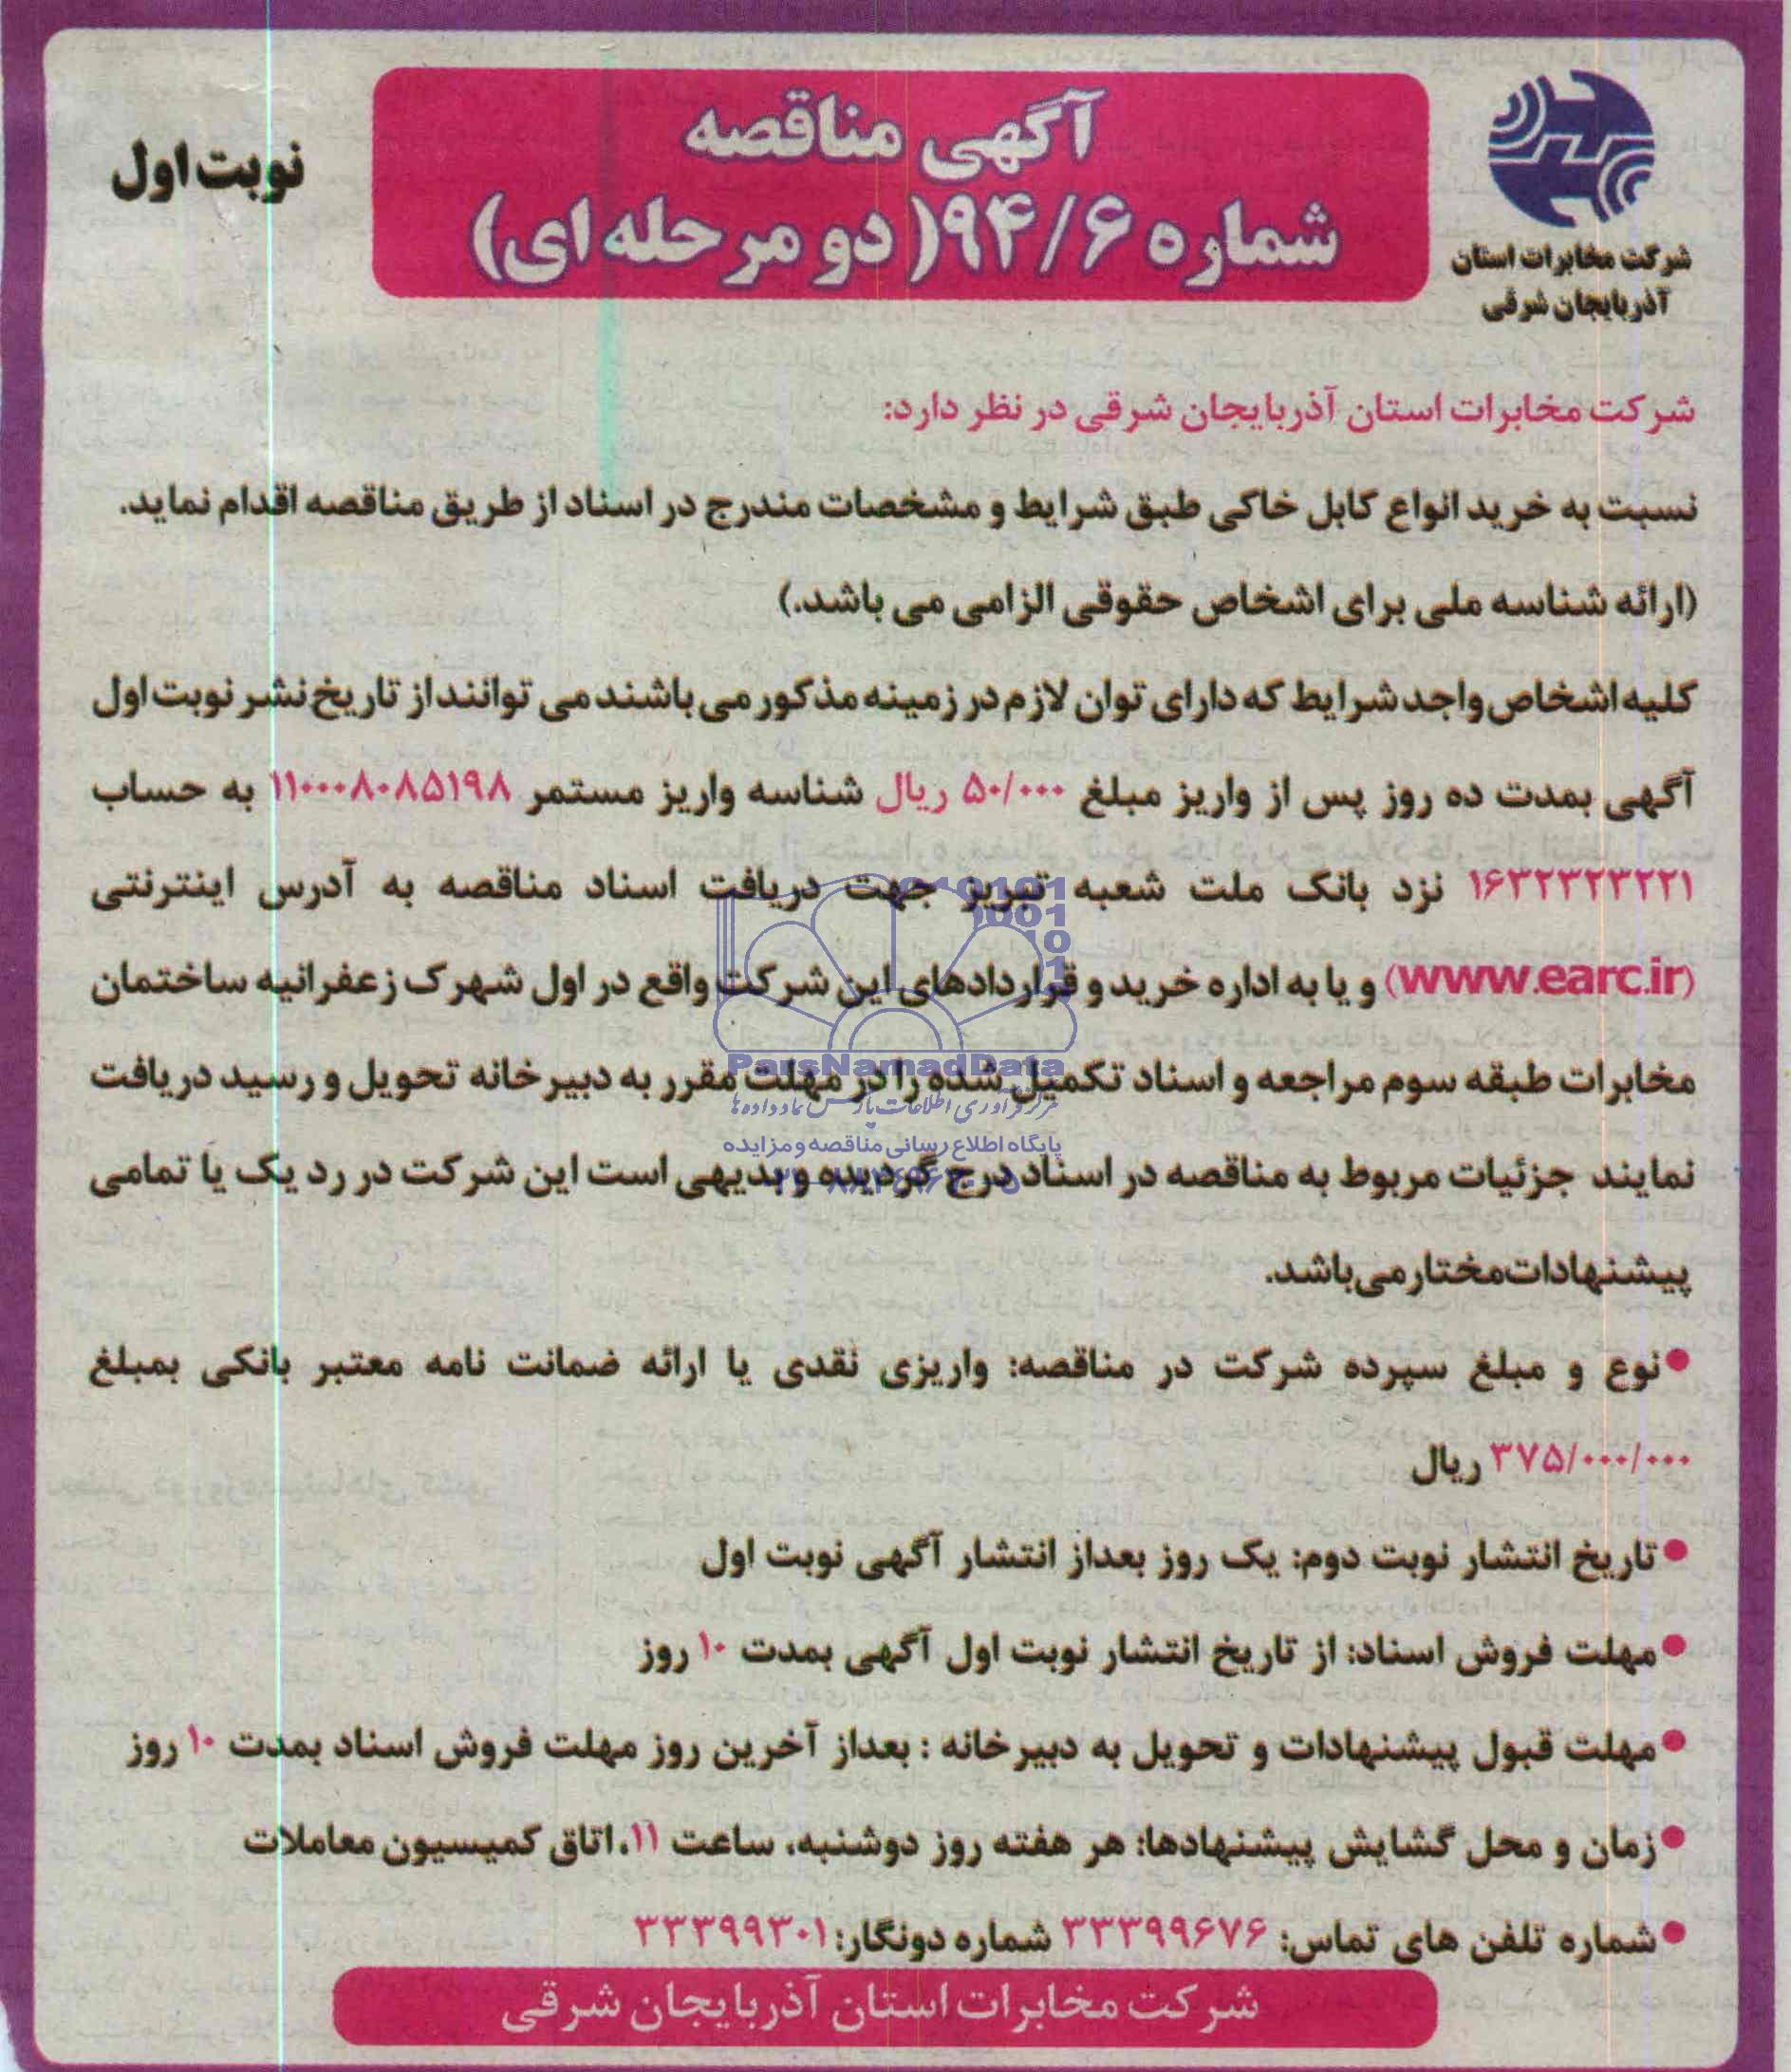 شرکت مخابرات استان
آذربایجان شرقی
آگهی مناقصه
شماره ۹۴/۶( دو مرحله ای)
نوبت اول
شرکت مخابرات استان آذربایجان شرقی در نظر دارد:
نسبت به خرید انواع کابل خاکی طبق شرایط و مشخصات مندرج در اسناد از طریق مناقصه اقدام نماید.
(ارائه شناسه ملی برای اشخاص حقوقی الزامی می باشد.)
کلیه اشخاص واجد شرایط که دارای توان لازم در زمینه مذکور می باشند می توانند از تاریخ نشر نوبت اول
آگهی بمدت ده روز پس از واریز مبلغ ۵۰/۰۰۰ ریال شناسه واریز مستمر ۱۱۰۰۰۸۰۸۵۱۹۸ به حساب
۱۶۳۲۳۲۳۲۲۱ نزد بانک ملت شعبه تبریز جهت دریافت اسناد مناقصه به آدرس اینترنتی
(www.earc.ir) و یا به اداره خرید و قراردادهای این شرکت واقع در اول شهرک زعفرانیه ساختمان
مخابرات طبقه سوم مراجعه و اسناد تکمیل شده را در مهلت مقرر به دبیرخانه تحویل و رسید دریافت
نمایند جزئیات مربوط به مناقصه در اسناد درج گردیده و بدیهی است این شرکت در رد یک یا تمامی
پیشنهادات مختار می باشد.
●نوع و مبلغ سپرده شرکت در مناقصه: واریزی نقدی یا ارائه ضمانت نامه معتبر بانکی بمبلغ
۳۷۵/۰۰۰/۰۰۰ ریال
●تاریخ انتشار نوبت دوم: یک روز بعداز انتشار آگهی نوبت اول
●مهلت فروش اسناد: از تاریخ انتشار نوبت اول آگهی بمدت ۱۰ روز
●مهلت قبول پیشنهادات و تحویل به دبیرخانه : بعداز آخرین روز مهلت فروش اسناد بمدت ۱۰ روز
●زمان و محل گشایش پیشنهادها: هر هفته روز دوشنبه، ساعت ۱۱، اتاق کمیسیون معاملات
●شماره تلفن های تماس: ۳۳۳۹۹۶۷۶ شماره دونگار: ۳۳۳۹۹۳۰۱
شرکت مخابرات استان آذربایجان شرقی
ParsNamadData
مرکز فرآوری اطلاعات پارس نماد داده ها
پایگاه اطلاع رسانی مناقصه و مزایده